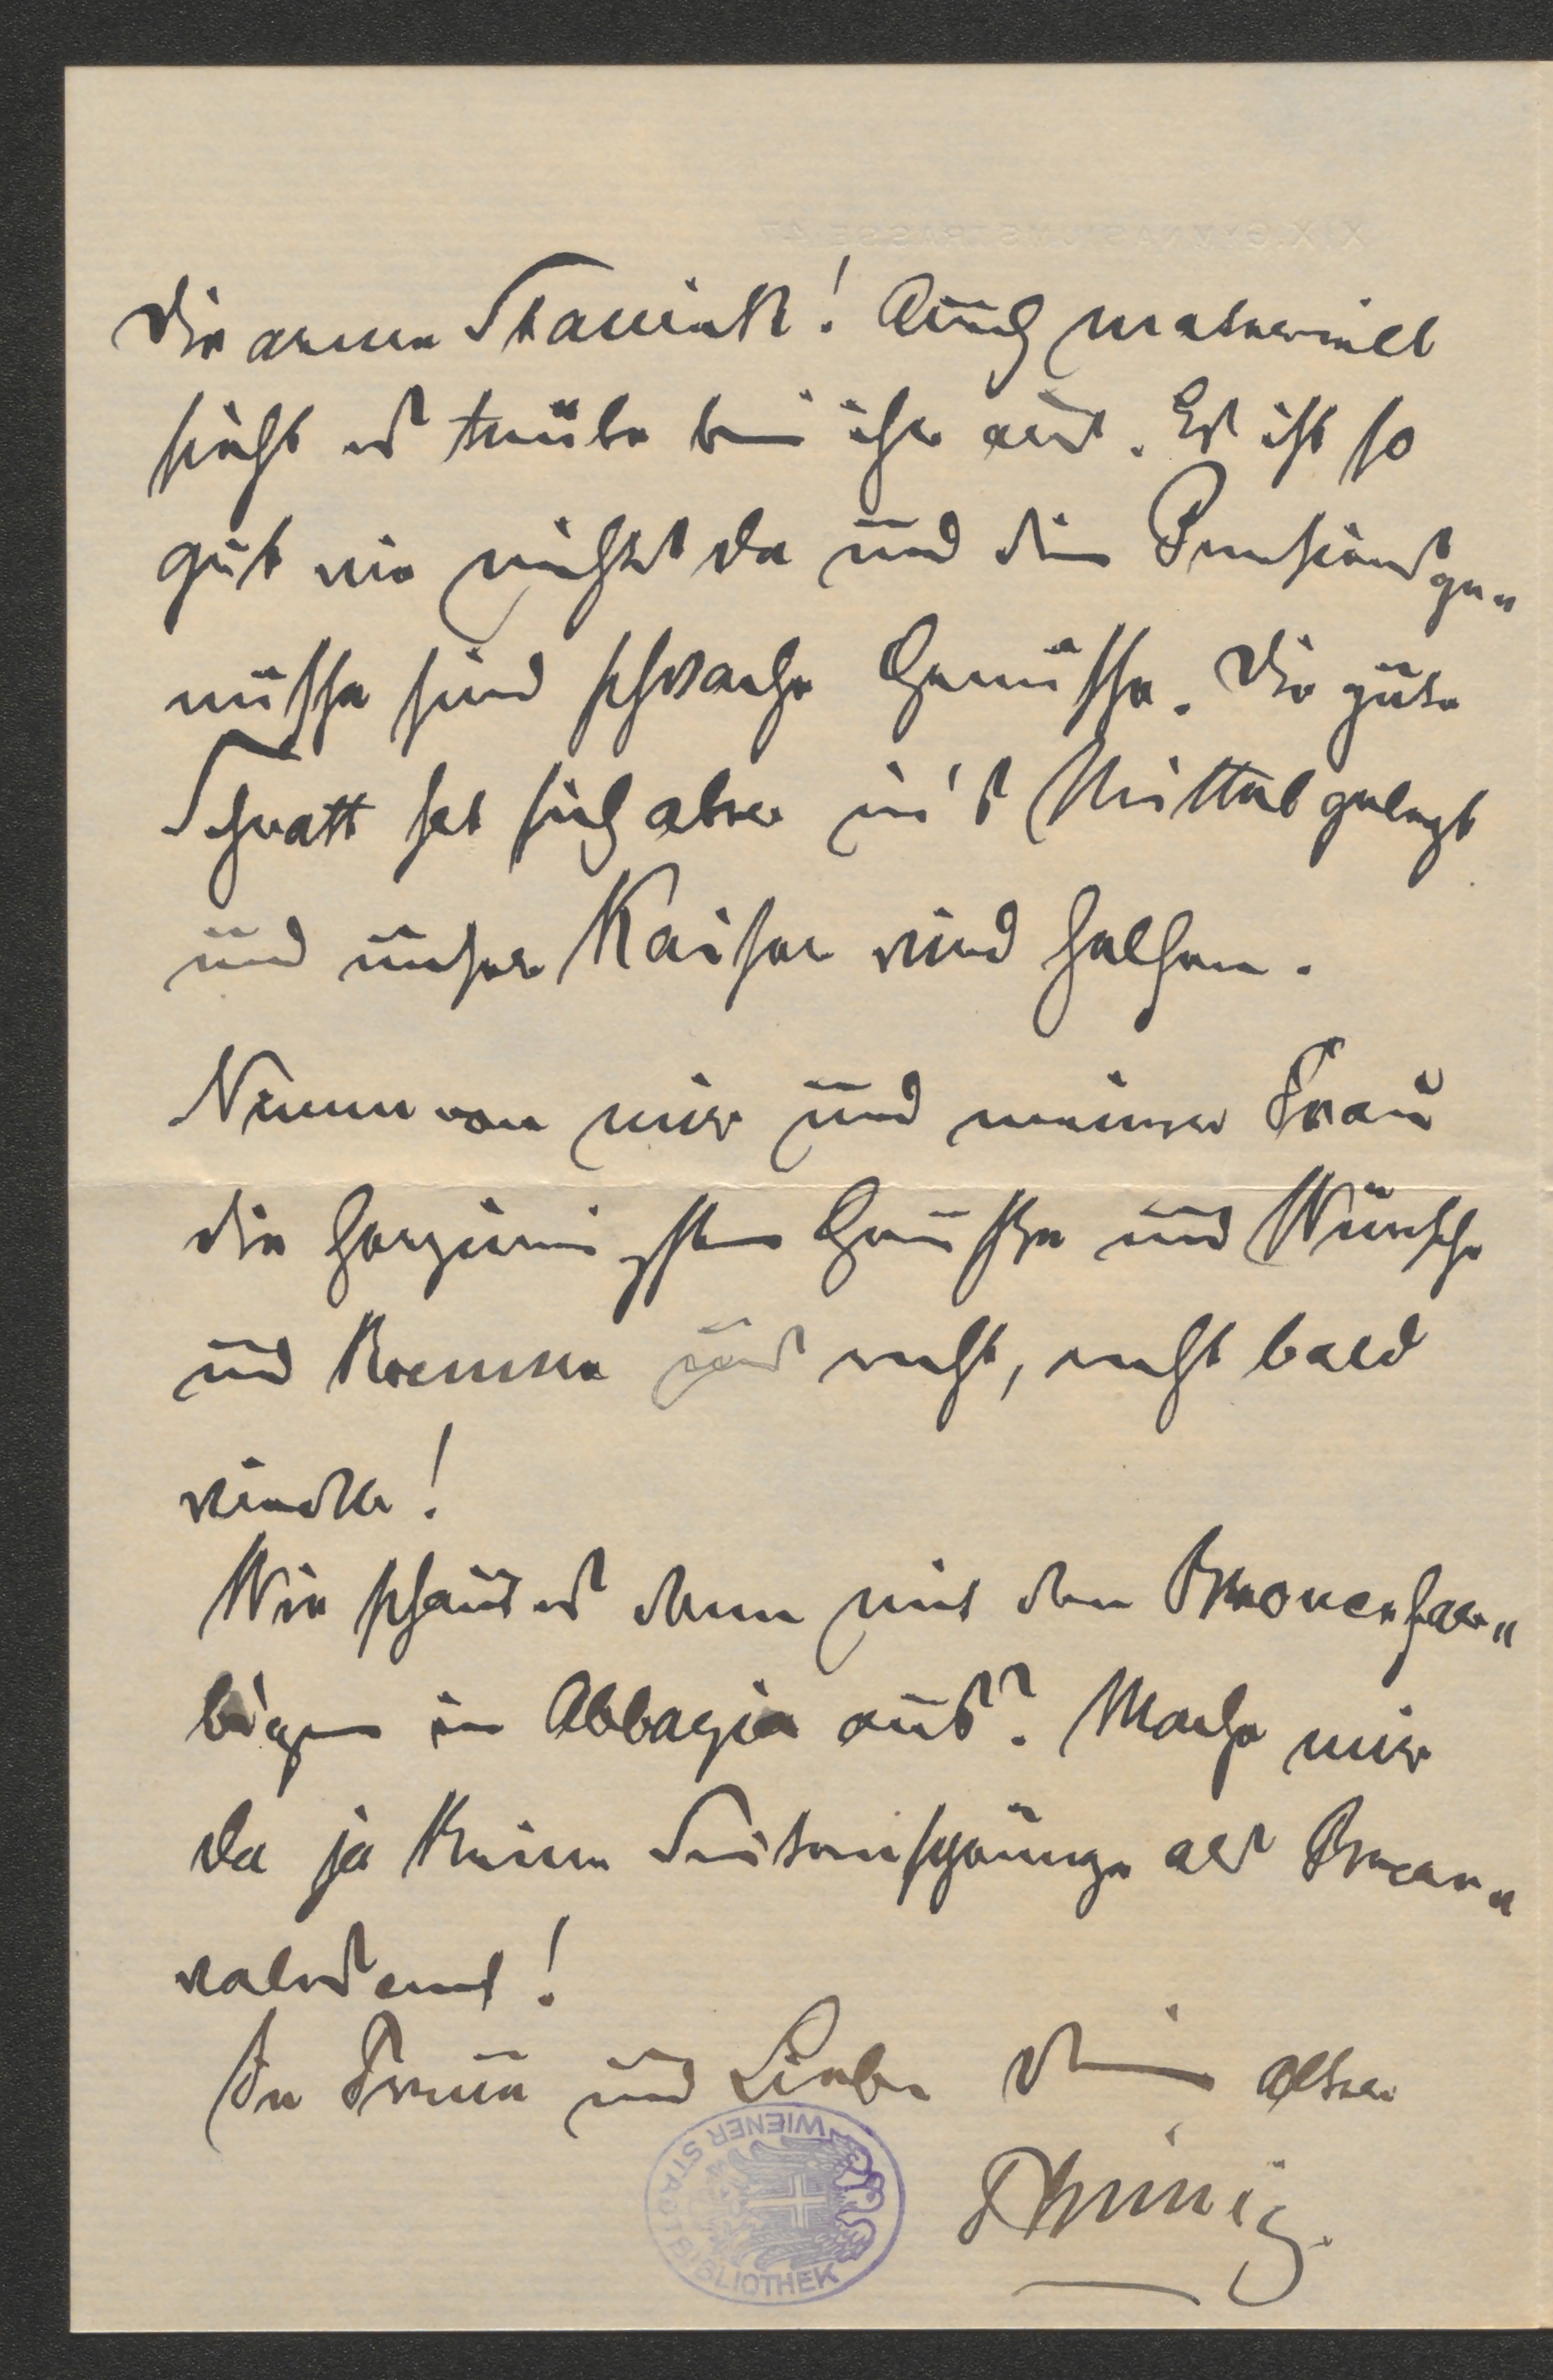 Die arme Stanicek! Auch materiell
sieht es trübe bei ihr aus. Es ist so
gut wie nichts da und die Pensionsge-
nüsse sind schwache Genüsse. Die gute
Schratt hat sich aber in's Mittel gelegt
und unser Kaiser wird helfen.
Nimm von mir und meiner Frau
die herzinnigsten Grüße und Wünsche
und komme uns recht, recht bald
wieder!
Wie schaut es denn mit den
in Abbazia aus? Mache mir
da ja keine Seitensprünge als
In Treue und Liebe Dein alter
Thimig.
WIENER STADTBIBLIOTHEK